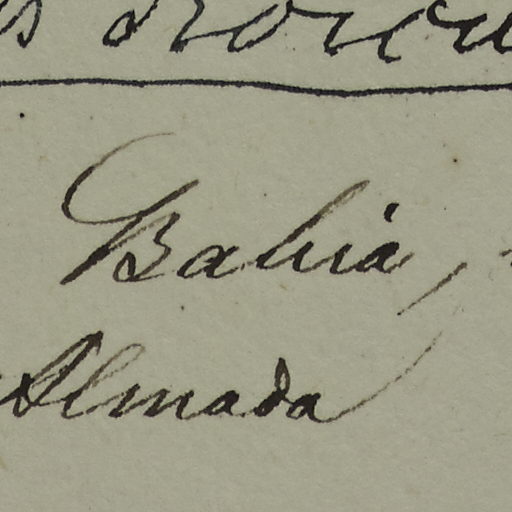 Bahia,
Almada